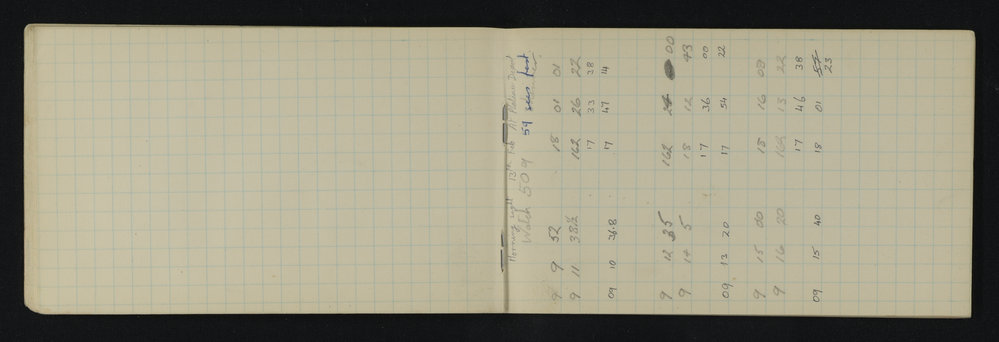 Morning sight 13th Feb At Depot
Watch 509 59 secs fast
9 9 52 18 01 01
9 11 162 26 22
17 33 38
09 10 26.8 17 47 14
9 12 35 162 00
9 14 5 18 12 43
17 36 00
09 13 20 17 54 22
9 15 00 18 16 03
9 16 20 162 13 22
17 46 38
09 15 40 18 01 57
23